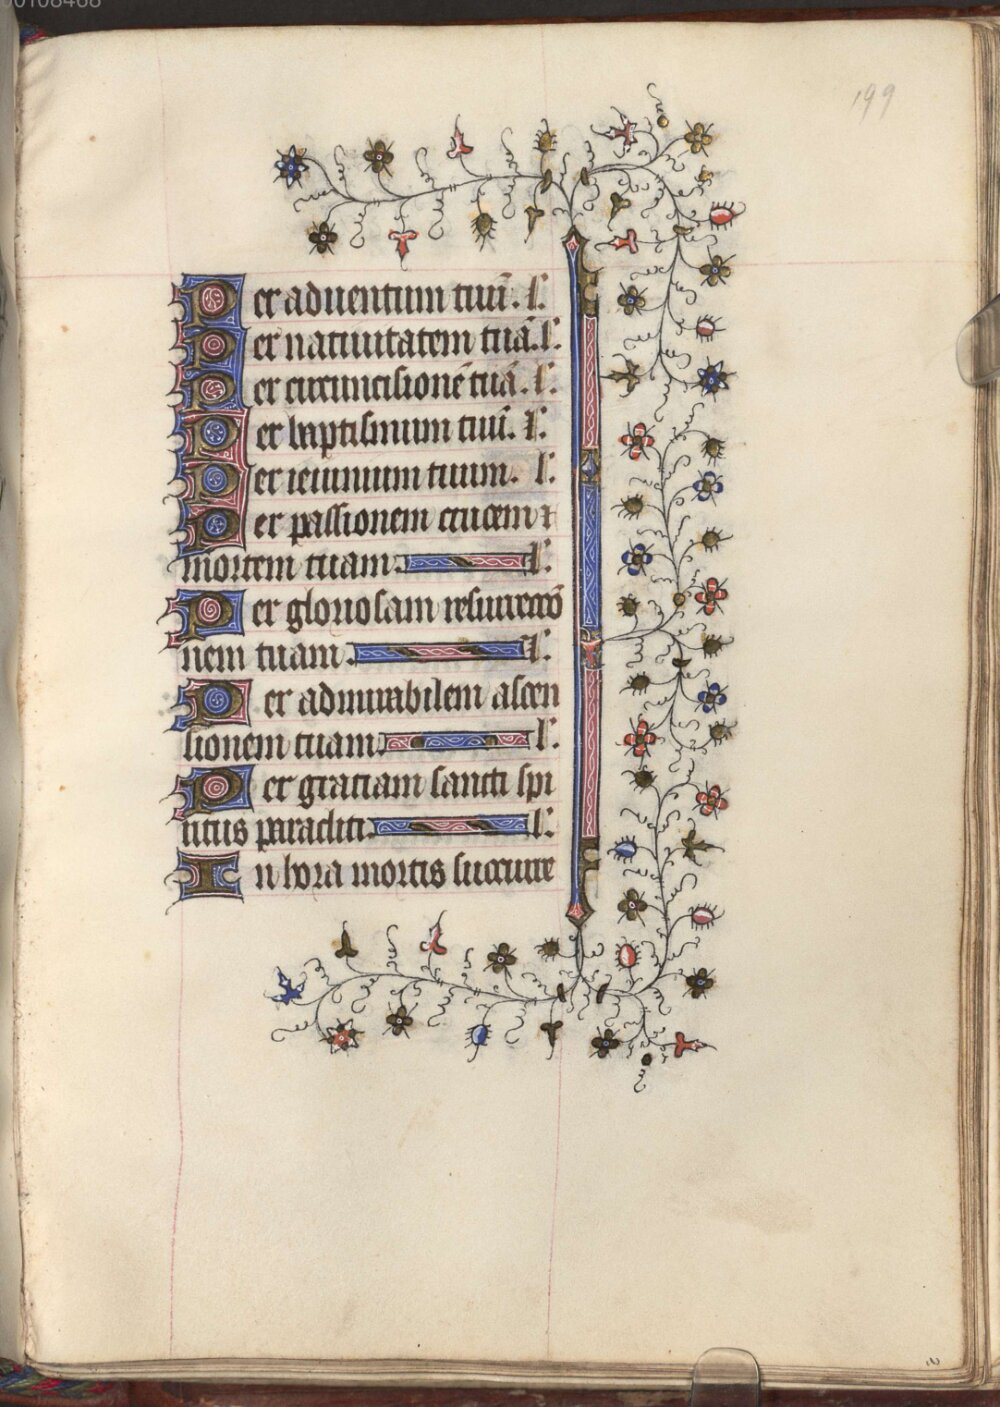 199
Per aduentum tuū. l'.
Per natiuitatem tuā. l'.
Per circuncisionē tuā. l'.
Per baptismum tuū. l'.
Per ieiunium tuum. l'.
Per passionem crucem ⁊
mortem tuam. l'.
Per gloriosam resurrectō
nem tuam. l'.
Per admirabilem ascen
sionem tuam. l'.
Per gratiam sancti spi
ritus paracliti. l'.
In hora mortis succurre